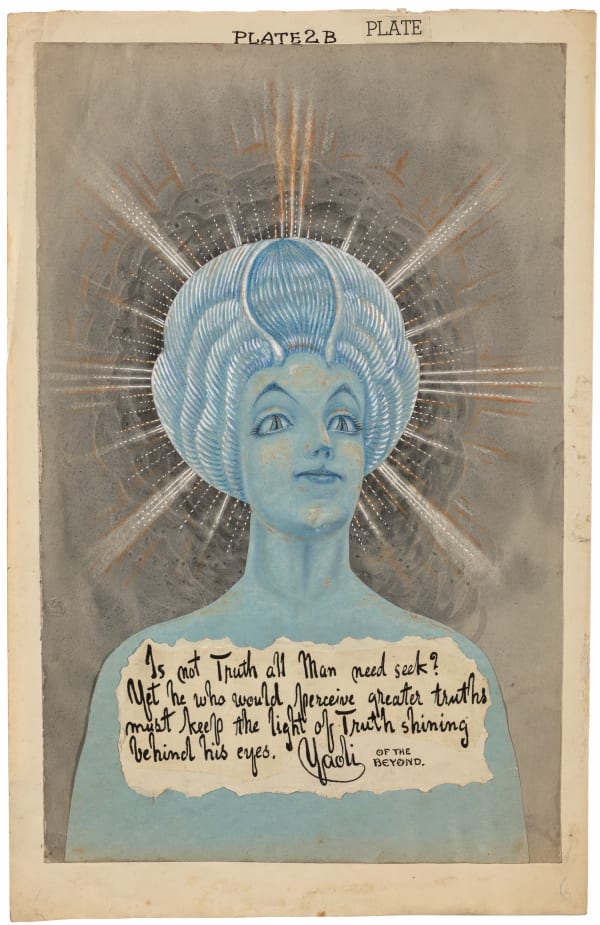 PLATE 2B
PLATE
Is not Truth all Man need seek?
Yet he who would perceive greater truths
must keep the light of Truth shining
behind his eyes. Yaoli OF THE
BEYOND.